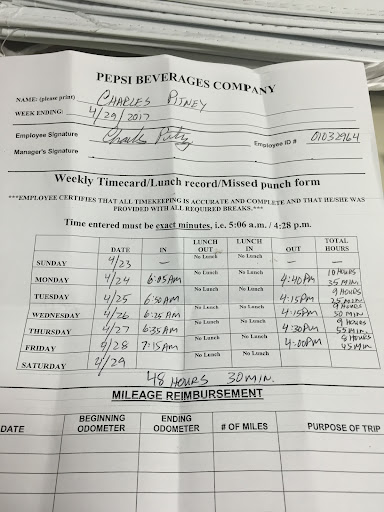 PEPSI BEVERAGES COMPANY
NAME: (please print) CHARLES PITNEY
WEEK ENDING: 4/29/2017
Employee Signature Employee ID # 01032964
Manager's Signature
Weekly Timecard/Lunch record/Missed punch form
***EMPLOYEE CERTIFIES THAT ALL TIMEKEEPING IS ACCURATE AND COMPLETE AND THAT HE/SHE WAS
PROVIDED WITH ALL REQUIRED BREAKS.***
Time entered must be exact minutes, i.e. 5:06 a.m. / 4:28 p.m.
DATE IN LUNCH OUT LUNCH IN OUT TOTAL HOURS
SUNDAY 4/23 — No Lunch No Lunch —
MONDAY 4/24 6:05AM No Lunch No Lunch 4:40PM 10 HOURS 35 MIN.
TUESDAY 4/25 6:50AM No Lunch No Lunch 4:15PM 9 HOURS 25 MIN.
WEDNESDAY 4/26 6:25 AM No Lunch No Lunch 4:15PM 9 HOURS 50 MIN.
THURSDAY 4/27 6:35 AM No Lunch No Lunch 4:30PM 9 HOURS 55 MIN.
FRIDAY 4/28 7:15AM No Lunch No Lunch 4:00PM 8 HOURS 45 MIN.
SATURDAY 4/29 No Lunch No Lunch
48 HOURS 30 MIN.
MILEAGE REIMBURSEMENT
DATE BEGINNING ODOMETER ENDING ODOMETER # OF MILES PURPOSE OF TRIP